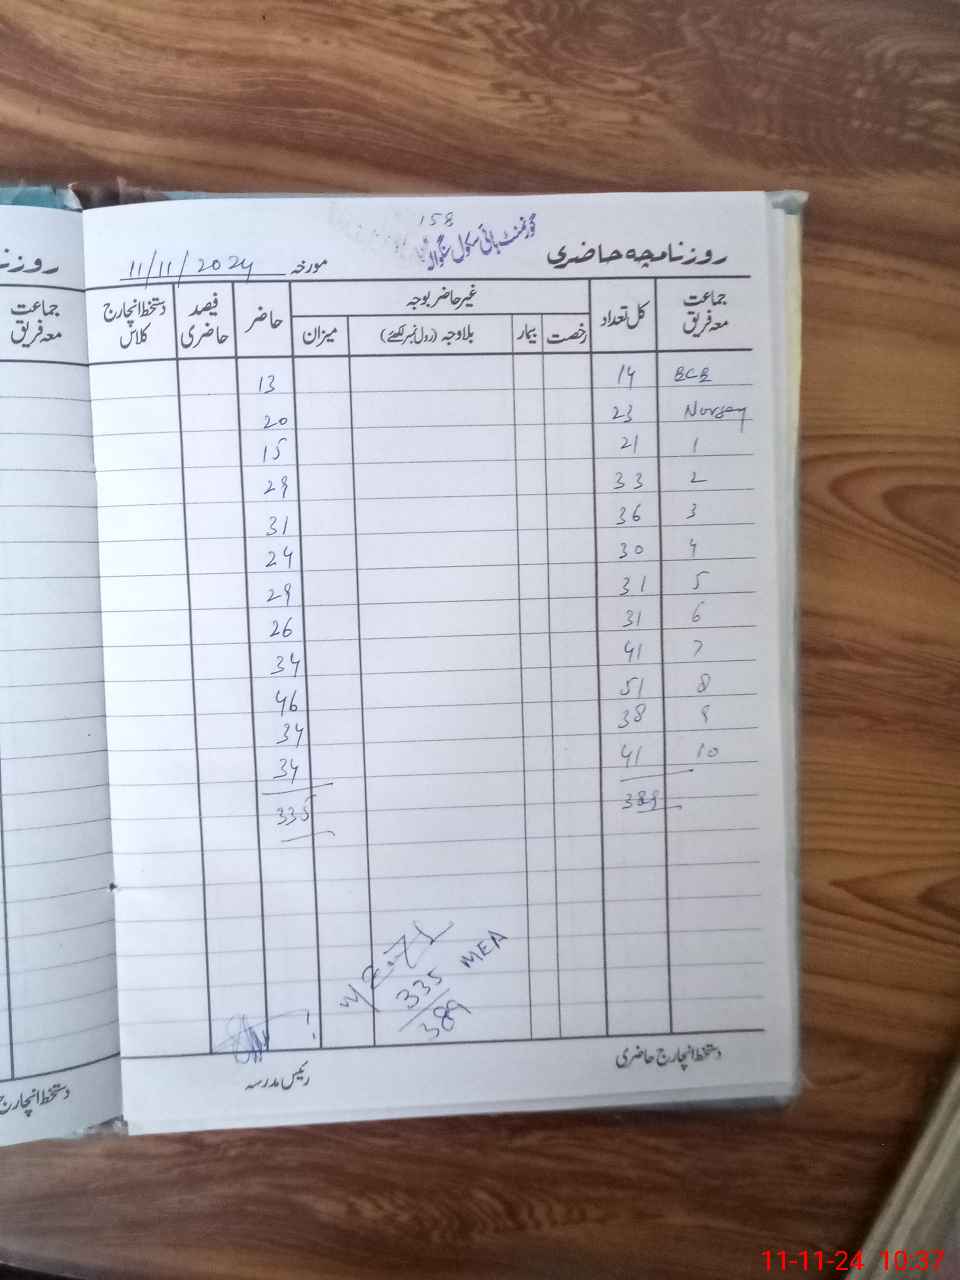 158
گورنمنٹ ہائی سکول جگوالہ
روزنامچہ حاضری
مورخہ 11/11/2024
جماعت معہ فریق کل تعداد غیر حاضر بوجہ حاضر فیصد حاضری دستخط انچارج کلاس
رخصت بیمار بلاوجہ (رول نمبر لکھئے) میزان
ECE 14 13
Nursery 23 20
1 21 15
2 33 29
3 36 31
4 30 24
5 31 29
6 31 26
7 41 34
8 51 46
9 38 34
10 41 34
389 335
MEA
335
389
دستخط انچارج حاضری
رئیس مدرسہ
روزنا
جماعت معہ فریق
دستخط انچارج
11-11-24 10:37